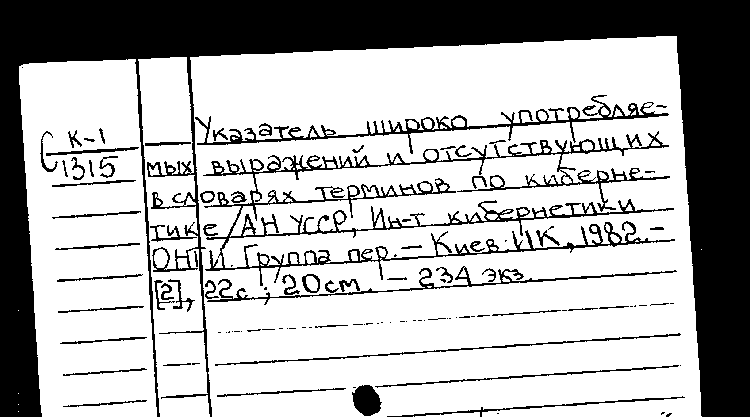 К-1
С 1315
Указатель широко употребляе-
мых выражений и отсутствующих
в словарях терминов по киберне-
тике / АН УССР, Ин-т кибернетики
ОНТИ. Группа пер. – Киев: ИК, 1982. –
[2], 22с.; 20см. – 234 экз.